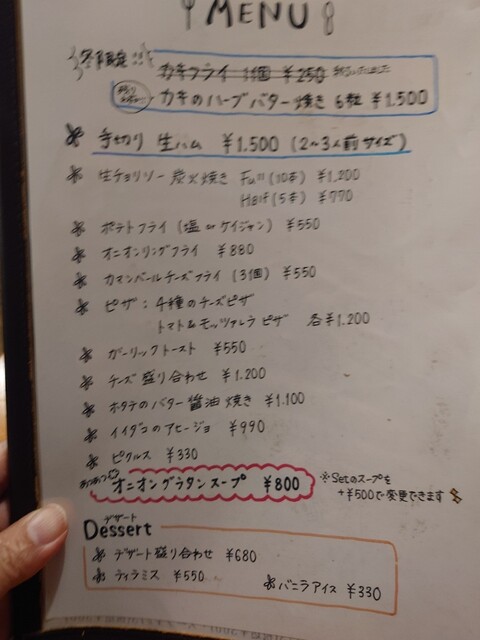 MENU
冬季限定!!
カキフライ 1個 ¥250 終了いたしました
カキのハーブバター焼き 6粒 ¥1,500
手切り 生ハム ¥1,500 (2~3人前サイズ)
生チョリソー 炭火焼き Full(10本) ¥1,200
Half(5本) ¥770
ポテトフライ (塩 or ケイジャン) ¥550
オニオンリングフライ ¥880
カマンベールチーズフライ (3個) ¥550
ピザ : 4種のチーズピザ
トマト&モッツァレラ ピザ 各¥1,200
ガーリックトースト ¥550
チーズ 盛り合わせ ¥1,200
ホタテのバター醤油焼き ¥1,100
イイダコのアヒージョ ¥990
ピクルス ¥330
あつあつ
オニオングラタンスープ ¥800
※Setのスープを
+¥500で変更できます
デザート
Dessert
デザート盛り合わせ ¥680
ティラミス ¥550
バニラアイス ¥330